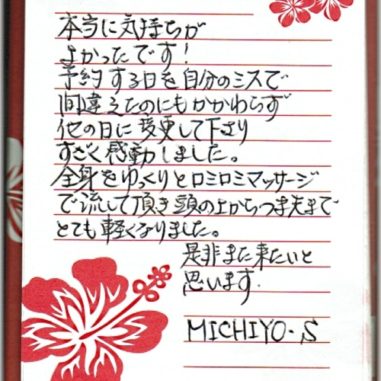 本当に気持ちが
よかったです!
予約する日を自分のミスで
間違えたのにもかかわらず
他の日に変更して下さり
すごく感動しました。
全身をゆっくりとロミロミマッサージ
で流して頂き頭の上からつま先まで
とても軽くなりました。
是非また来たいと
思います.
MICHIYO.S